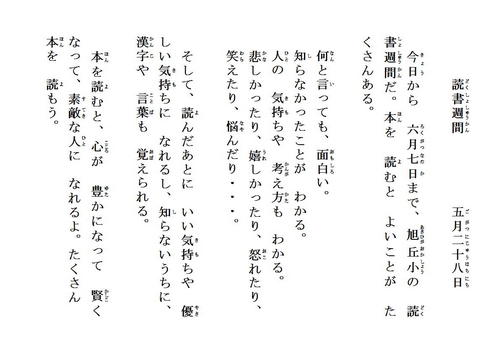 読書週間　五月二十八日
今日から　六月七日まで、旭丘小の　読
書週間だ。本を　読むと　よいことが　た
くさんある。
何と言っても、面白い。
知らなかったことが　わかる。
人の　気持ちや　考え方も　わかる。
悲しかったり、嬉しかったり、怒れたり、
笑えたり、悩んだり・・・。
そして、読んだあとに　いい気持ちや　優
しい気持ちに　なれるし、知らないうちに、
漢字や　言葉も　覚えられる。
本を　読むと、心が　豊かになって　賢く
なって、素敵な人に　なれるよ。たくさん
本を　読もう。